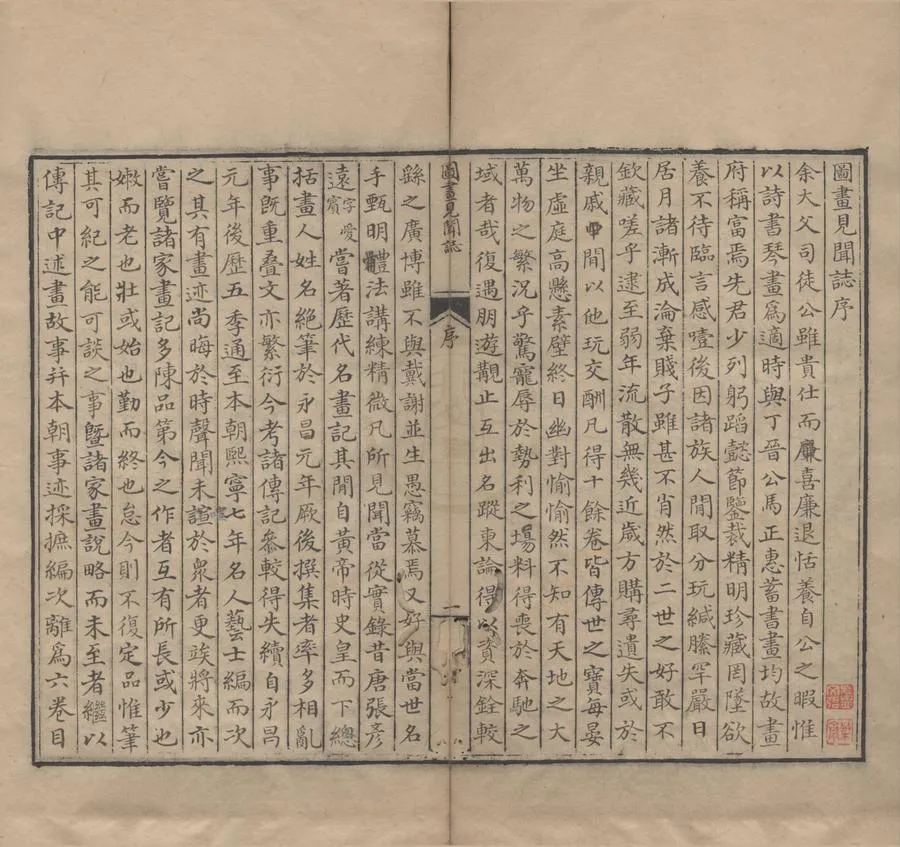 圖畫見聞誌序
余大父司徒公雖貴仕而廉喜廉退恬養自公之暇惟
以詩書琴畫爲適時與丁晉公馬正惠蓄書畫均故畫
府稱富焉先君少列躬蹈懿節鑒裁精明珍藏罔墜欲
養不待臨言感噎後因諸族人閒取分玩緘縢罕嚴日
居月諸漸成淪棄賤子雖甚不肖然於二世之好敢不
欽藏嗟乎逮至弱年流散無幾近歲方購尋遺失或於
親戚中閒以他玩交酬凡得十餘卷皆傳世之寶每宴
坐虛庭高懸素壁終日幽對愉愉然不知有天地之大
萬物之繁況乎驚寵辱於勢利之場料得喪於奔馳之
域者哉復遇朋遊觀止互出名蹤柬論得以資深銓較
圖畫見聞誌
序
二
繇之廣博雖不與戴謝並生愚竊慕焉又好與當世名
手甄明體法講練精微凡所見聞當從實錄昔唐張彥
遠字愛賓嘗著歷代名畫記其閒自黃帝時史皇而下總
括畫人姓名絕筆於永昌元年厥後撰集者率多相亂
事既重疊文亦繁衍今考諸傳記參較得失續自永昌
元年後歷五季通至本朝熙寧七年名人藝士編而次
之其有畫迹尚晦於時聲聞未諠於衆者更竢將來亦
嘗覽諸家畫記多陳品第今之作者互有所長或少也
嫩而老也壯或始也勤而終也怠今則不復定品惟筆
其可紀之能可談之事曁諸家畫說略而未至者繼以
傳記中述畫故事并本朝事迹採摭編次離爲六卷目